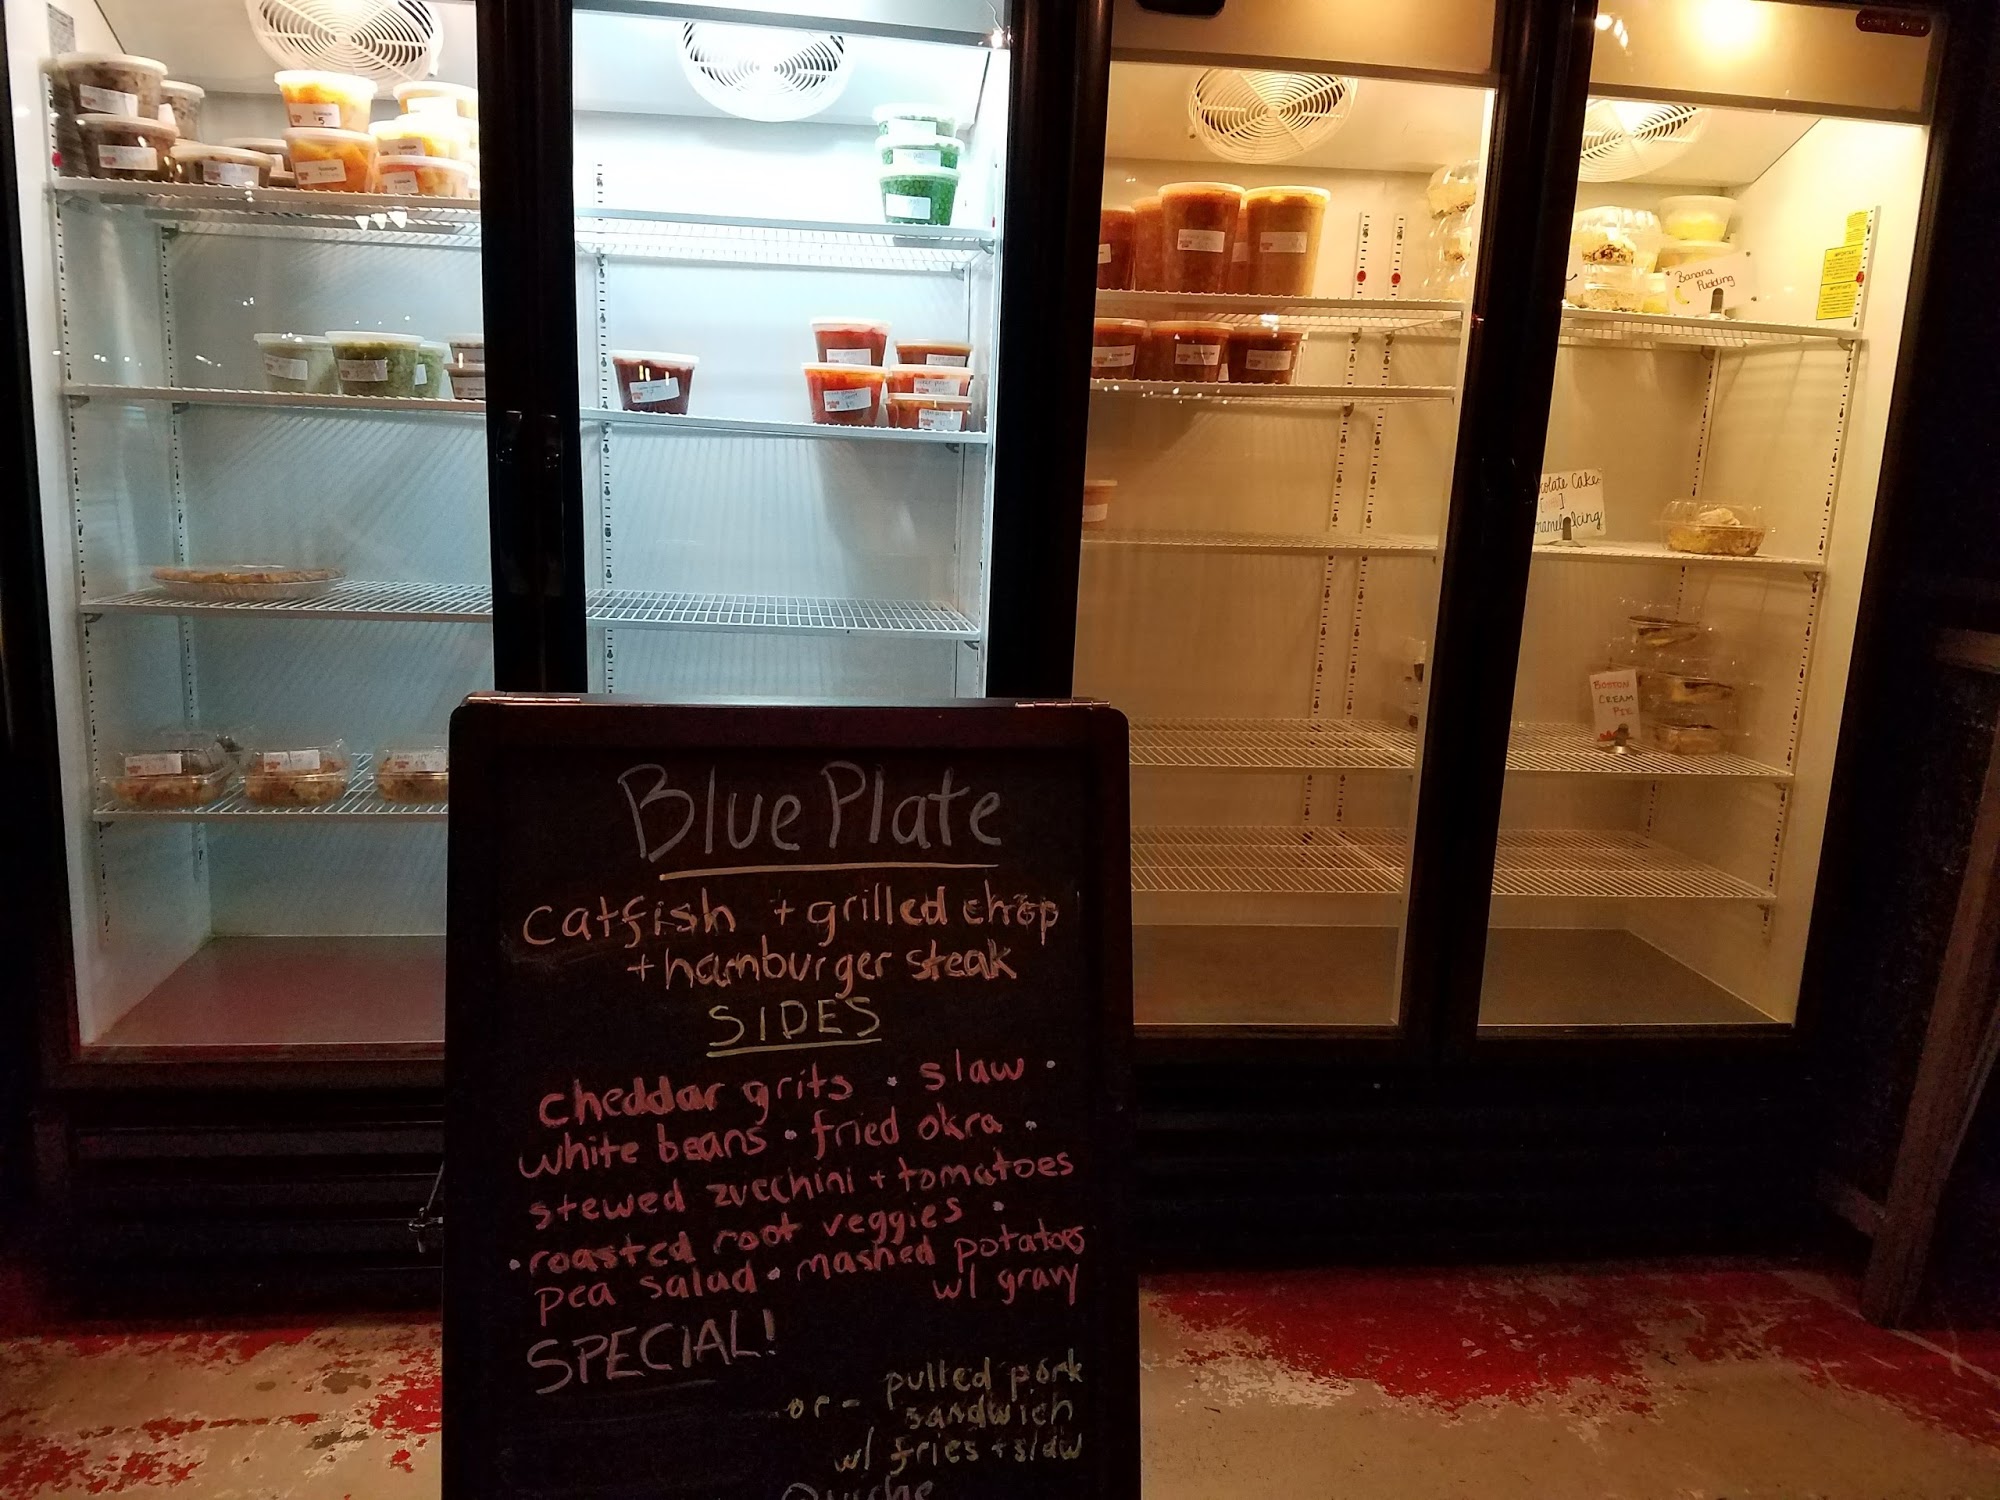 Banana
Pudding
Cake
Icing
BOSTON
CREAM
PIE
Blue Plate
catfish + grilled chop
+ hamburger steak
SIDES
cheddar grits · slaw ·
white beans · fried okra ·
stewed zucchini + tomatoes
· roasted root veggies ·
pea salad · mashed potatoes
w/ gravy
SPECIAL!
or - pulled pork
sandwich
w/ fries + slaw
Quiche